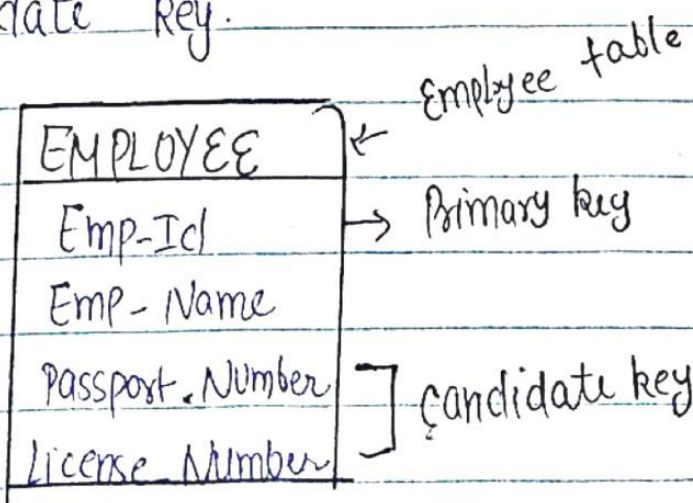 date key.
Emplyee table
EMPLOYEE
Emp-Id
Primary key
Emp-Name
Passport.Number
License_Number
Candidate key